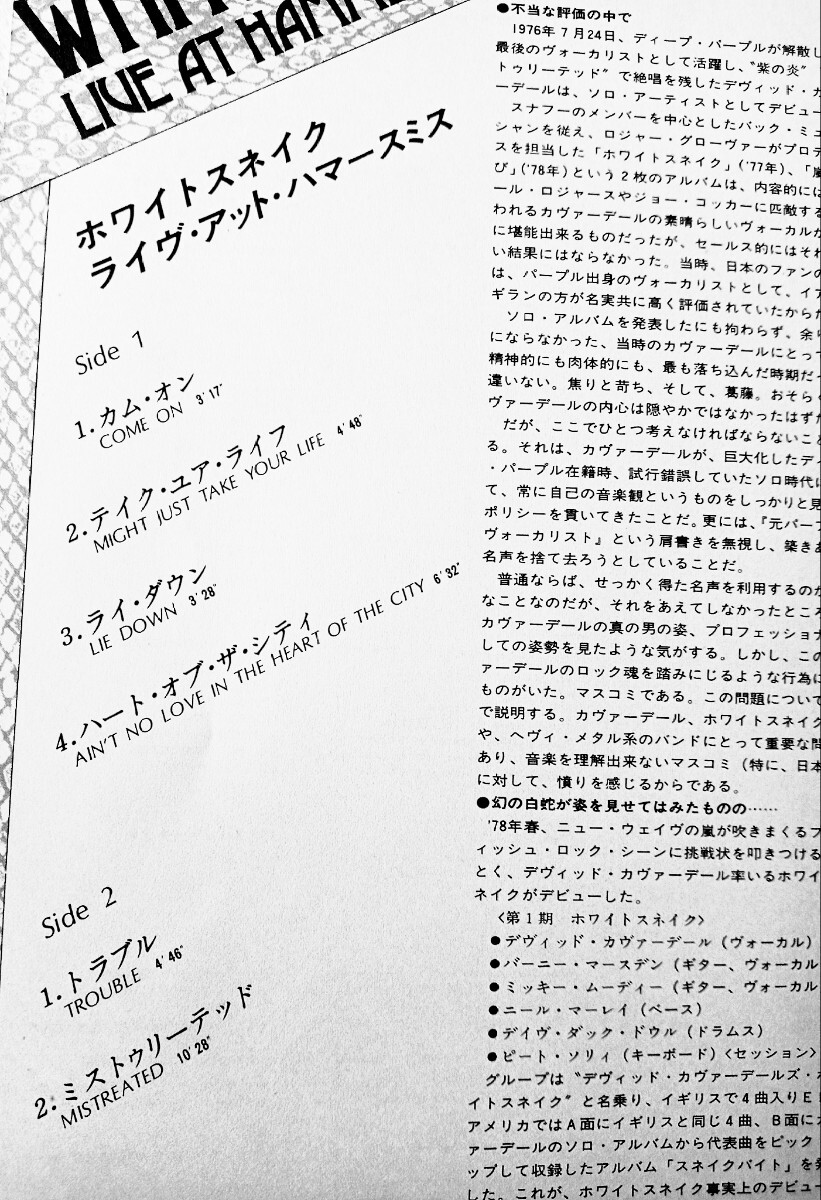 LIVE AT HAMME
ホワイトスネイク
ライヴ・アット・ハマースミス
Side 1
1.カム・オン
COME ON 3'17"
2.テイク・ユア・ライフ
MIGHT JUST TAKE YOUR LIFE 4'48"
3.ライ・ダウン
LIE DOWN 3'28"
4.ハート・オブ・ザ・シティ
AIN'T NO LOVE IN THE HEART OF THE CITY 6'32"
Side 2
1.トラブル
TROUBLE 4'46"
2.ミストゥリーテッド
MISTREATED 10'28"
●不当な評価の中で
1976年7月24日、ディープ・パープルが解散し
最後のヴォーカリストとして活躍し、"紫の炎"
トゥリーテッド"で絶唱を残したデヴィッド・カ
ーデールは、ソロ・アーティストとしてデビュー
スナフーのメンバーを中心としたバック・ミュ
シャンを従え、ロジャー・グローヴァーがプロデ
スを担当した「ホワイトスネイク」('77年)、「嵐
び」('78年)という2枚のアルバムは、内容的には
ール・ロジャースやジョー・コッカーに匹敵する
われるカヴァーデールの素晴らしいヴォーカルが
に堪能出来るものだったが、セールス的にはそれ
い結果にはならなかった。当時、日本のファンの
は、パープル出身のヴォーカリストとして、イア
ギランの方が名実共に高く評価されていたからだ
ソロ・アルバムを発表したにも拘わらず、余り
にならなかった、当時のカヴァーデールにとって
精神的にも肉体的にも、最も落ち込んだ時期だっ
違いない。焦りと苛ち、そして、葛藤。おそらく
ヴァーデールの内心は隠やかではなかったはずだ
だが、ここでひとつ考えなければならないこと
る。それは、カヴァーデールが、巨大化したディ
・パープル在籍時、試行錯誤していたソロ時代に
て、常に自己の音楽観というものをしっかりと見
ポリシーを貫いてきたことだ。更には、『元パープ
ヴォーカリスト』という肩書きを無視し、築きあ
名声を捨て去ろうとしていることだ。
普通ならば、せっかく得た名声を利用するのが
なことなのだが、それをあえてしなかったところ
カヴァーデールの真の男の姿、プロフェッショナ
しての姿勢を見たような気がする。しかし、この
ァーデールのロック魂を踏みにじるような行為に
ものがいた。マスコミである。この問題について
で説明する。カヴァーデール、ホワイトスネイク
や、ヘヴィ・メタル系のバンドにとって重要な問
あり、音楽を理解出来ないマスコミ（特に、日本
に対して、憤りを感じるからである。
●幻の白蛇が姿を見せてはみたものの……
'78年春、ニュー・ウェイヴの嵐が吹きまくるブ
ィッシュ・ロック・シーンに挑戦状を叩きつける
とく、デヴィッド・カヴァーデール率いるホワイ
ネイクがデビューした。
〈第1期　ホワイトスネイク〉
●デヴィッド・カヴァーデール（ヴォーカル）
●バーニー・マースデン（ギター、ヴォーカル
●ミッキー・ムーディー（ギター、ヴォーカル
●ニール・マーレイ（ベース）
●デイヴ・ダック・ドウル（ドラムス）
●ピート・ソリィ（キーボード）〈セッション〉
グループは"デヴィッド・カヴァーデールズ・ホ
イトスネイク"と名乗り、イギリスで4曲入りE
アメリカではA面にイギリスと同じ4曲、B面にカ
ァーデールのソロ・アルバムから代表曲をピック
ップして収録したアルバム「スネイクバイト」を発
した。これが、ホワイトスネイク事実上のデビュー